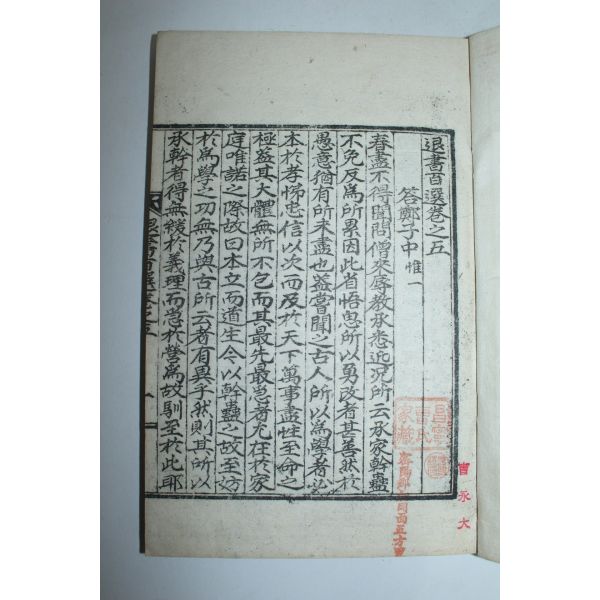 退書百選卷之五
答鄭子中 惟一
春盡不得聞問僧來辱敎承悉近況所云承家幹蠱
不免反爲所累因此省悟思所以勇改者甚善然於
愚意猶有所未盡也蓋嘗聞之古人所以爲學者必
本於孝悌忠信以次而及於天下萬事盡性至命之
極蓋其大體無所不包而其最先最急者尤在於家
庭唯諾之際故曰本立而道生今以幹蠱之故至妨
於爲學之功無乃與古所云者有異乎然則其所以
承幹者得無緩於義理而急於營爲故馴至於此耶
退書百選卷之五
一
昌寧
曺氏
家藏
曺永大